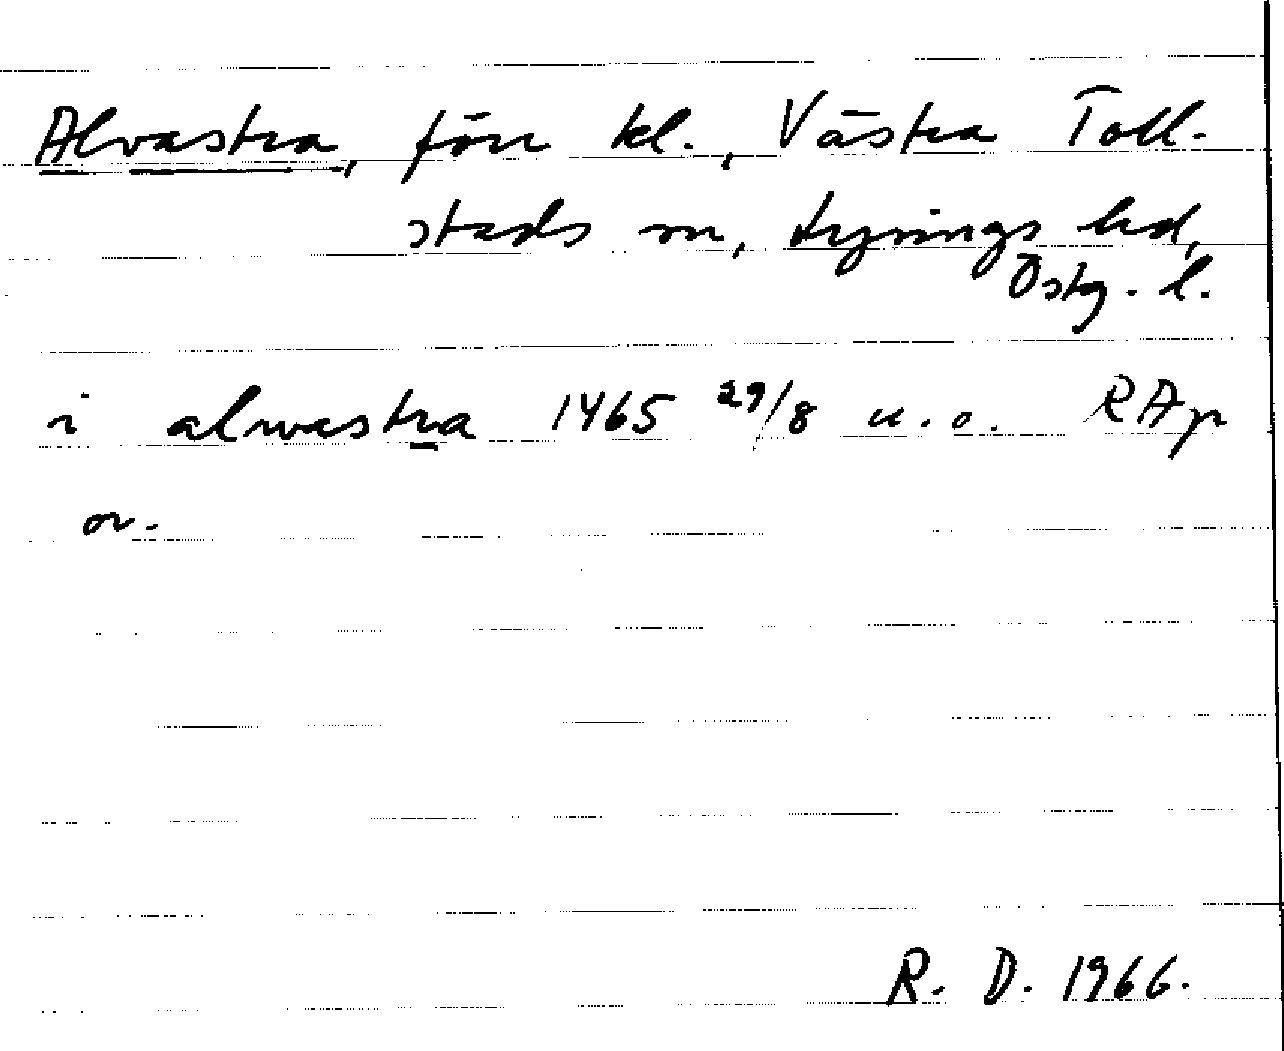 Alvastra, förr kl., Västra Toll-
stads sn, Lysings hd,
Östg. l.
i alwastra 1465 29/8 u.o. RAp
or.
R. D. 1966.